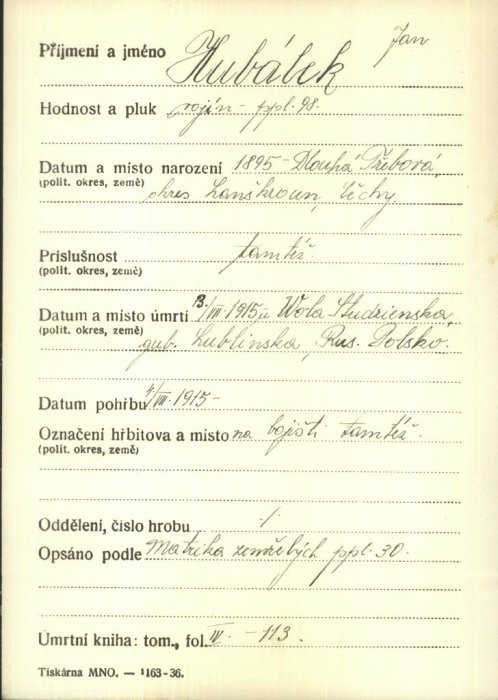 Příjmení a jméno Hubálek Jan
Hodnost a pluk vojín - ppl. 98.
Datum a místo narození 1895 - Dlouhá Třebová,
(polit. okres, země) okres Lanškroun, Čechy.
Příslušnost tamtéž.
(polit. okres, země)
Datum a místo úmrtí /VIII. 1915 u Wola Studzienska,
(polit. okres, země) gub. Lublinska, Rus. Polsko.
Datum pohřbu /VIII. 1915 -
Označení hřbitova a místo na bojišti tamtéž.
(polit. okres, země)
Oddělení, číslo hrobu /.
Opsáno podle Matrika zemřelých ppl. 30.
Úmrtní kniha: tom., fol. IV. - 113.
Tiskárna MNO. — 1163-36.